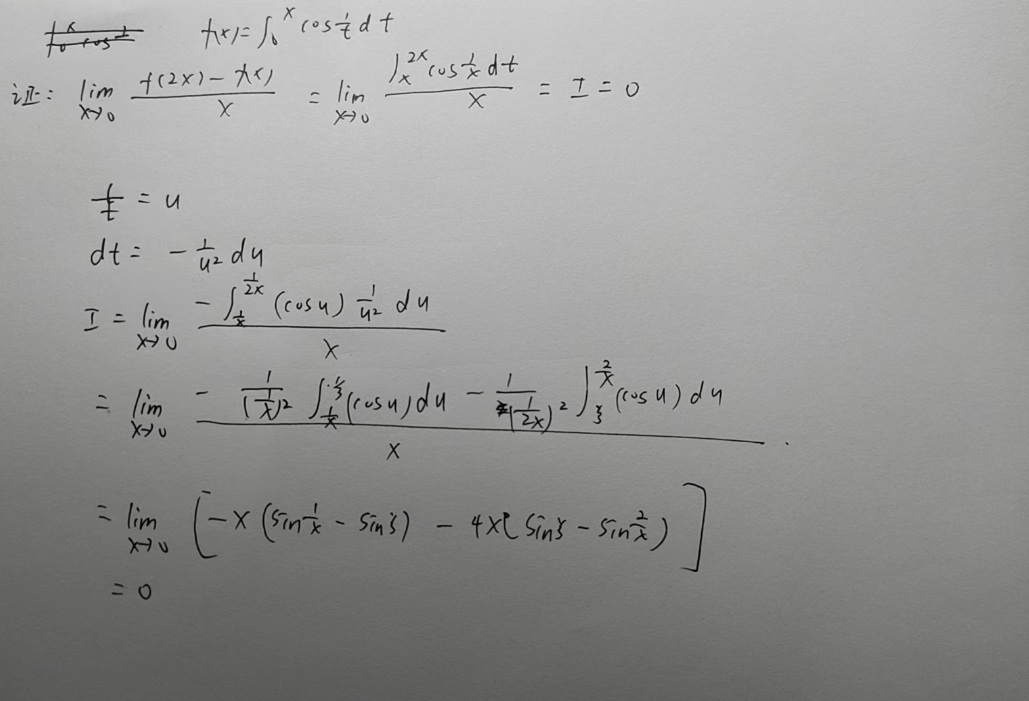 f(x) = ∫₀ˣ cos 1/t dt
证: lim_{x→0} (f(2x) - f(x))/x = lim_{x→0} (∫_x^{2x} cos 1/x dt)/x = I = 0
1/t = u
dt = - 1/u² du
I = lim_{x→0} (-∫_{1/x}^{1/2x} (cos u) 1/u² du)/x
= lim_{x→0} (- 1/(1/x)² ∫_{1/x}^{ξ} (cos u) du - 1/(1/2x)² ∫_{ξ}^{2/x} (cos u) du)/x .
= lim_{x→0} [-x (sin 1/x - sin ξ) - 4x (sin ξ - sin 2/x)]
= 0